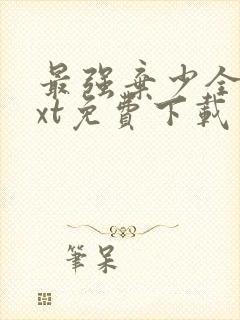 最強棄少全
xt免費下載
筆呆